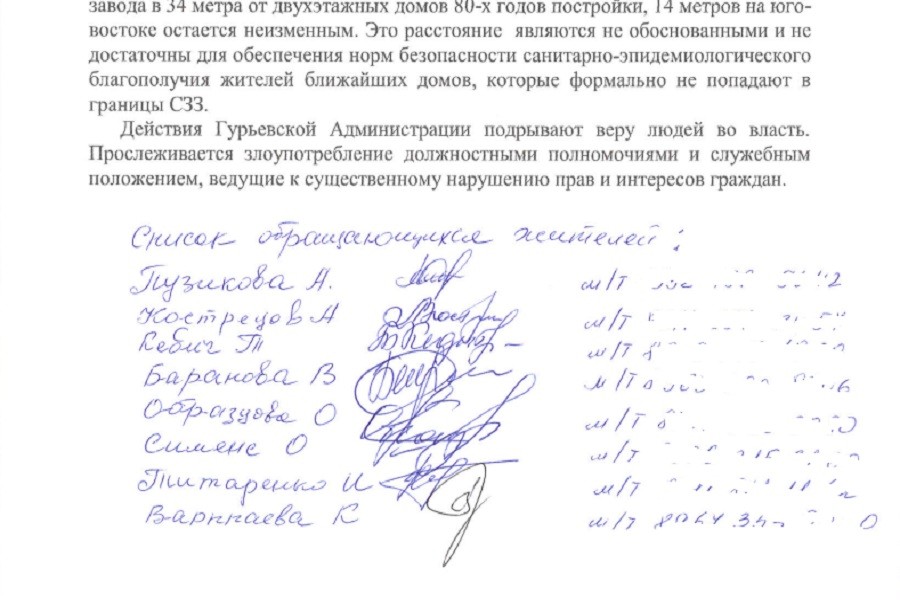 завода в 34 метра от двухэтажных домов 80-х годов постройки, 14 метров на юго-
востоке остается неизменным. Это расстояние являются не обоснованными и не
достаточны для обеспечения норм безопасности санитарно-эпидемиологического
благополучия жителей ближайших домов, которые формально не попадают в
границы СЗЗ.
Действия Гурьевской Администрации подрывают веру людей во власть.
Прослеживается злоупотребление должностными полномочиями и служебным
положением, ведущие к существенному нарушению прав и интересов граждан.
Список обращающихся жителей:
Пузикова А. м/т
Кострецов А м/т
Кебич Т м/т
Баранова В м/т
Образцова О м/т
Сименс О м/т
Титаренко И м/т
Варппаева К м/т